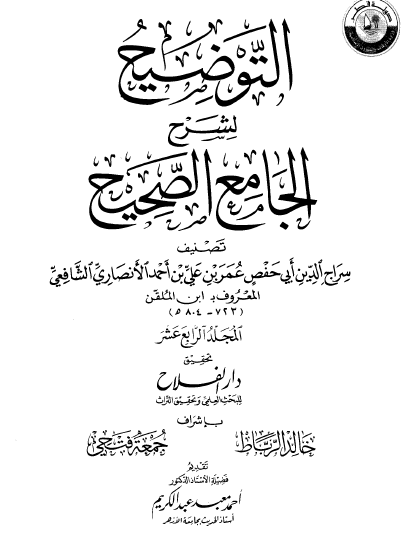 التَّوضِيحُ
لِشَرْحِ
الجَامِعِ الصَّحِيحِ
تَصْنِيف
سِرَاجِ الدِّينِ أَبِي حَفْصٍ عُمَرَ بْنِ عَلِيِّ بْنِ أَحْمَدَ الأَنْصَارِيِّ الشَّافِعِيِّ
المَعْرُوفِ بِـ ابن المُلَقِّن
(٧٢٣-٨٠٤ هـ)
المُجَلَّدُ الرَّابِعَ عَشَرَ
تحقيق
دَارُ الفَلاَحِ
لِلبَحْثِ العِلْمِيِّ وَتَحْقِيقِ التُّرَاثِ
بِإِشْرَافِ
خَالِد الرَّبَّاط جُمعَة فَتْحِي
تَقْدِيمُ
فَضِيلَةِ الأُسْتَاذِ الدُّكتُور
أحمد معبد عبد الكريم
أستاذ الحديث بجامعة الأزهر